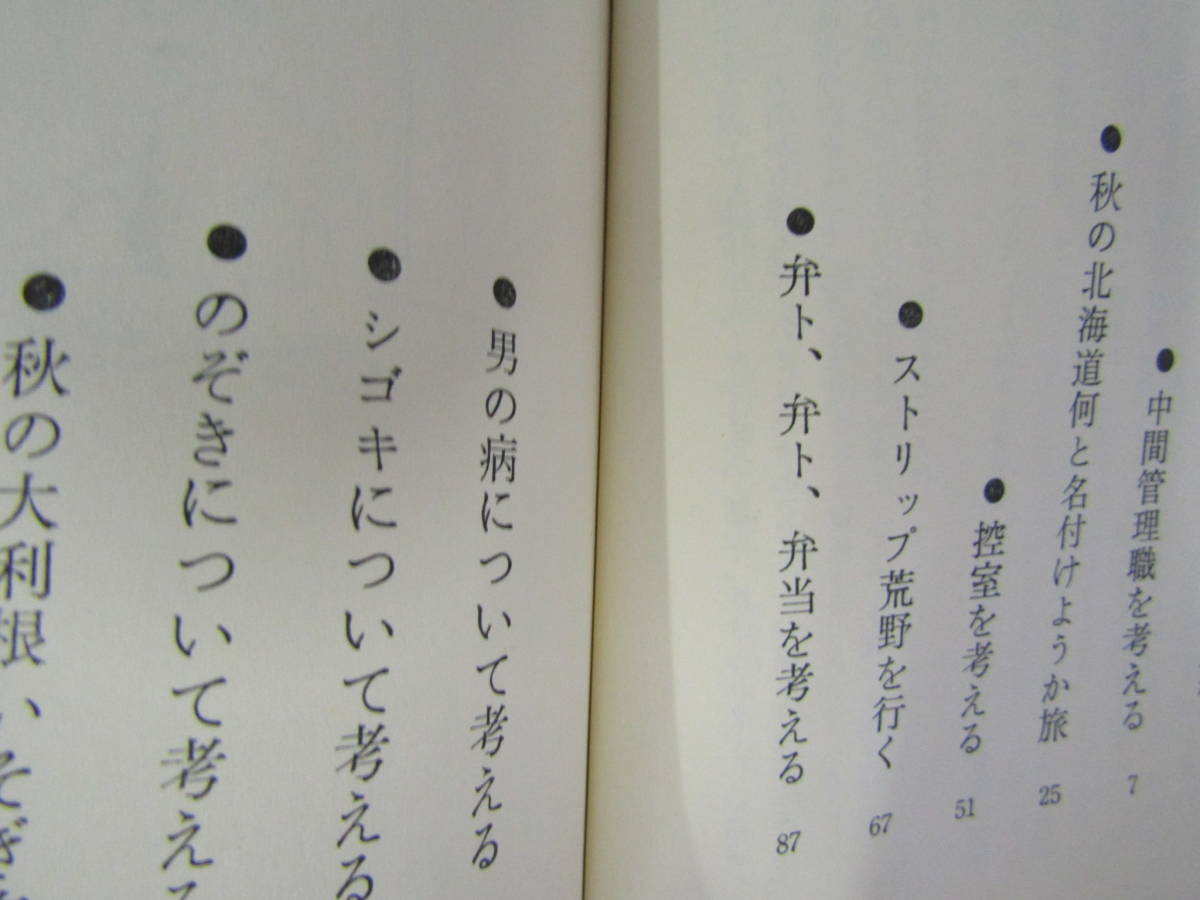 ●中間管理職を考える 7
●秋の北海道何と名付けようか旅 25
●控室を考える 51
●ストリップ荒野を行く 67
●弁ト、弁ト、弁当を考える 87
●男の病について考える
●シゴキについて考える
●のぞきについて考え
●秋の大利根い